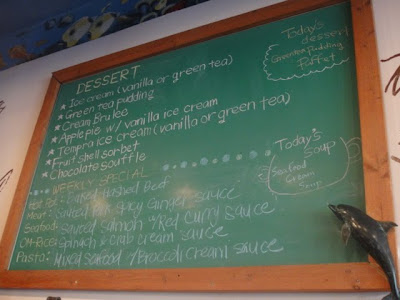 DESSERT
★ Ice cream (vanilla or green tea)
★ Green tea pudding
★ Cream Brulee
★ Apple pie w/ vanilla ice cream
★ Tempra ice cream (vanilla or green tea)
★ Fruit shell sorbet
★ Chocolate souffle
Today's
dessert
Greentea Pudding
Parfait
Today's
Soup
Seafood
Cream
Soup
WEEKLY SPECIAL
Hot Pot: Hashed Beef
Meat: Sauteed Pork Spicy Ginger sauce
Seafood: Sauteed Salmon w/Red Curry sauce
OM-Rice: Spinach & Crab cream sauce
Pasta: Mixed Seafood w/Broccoli Cream sauce